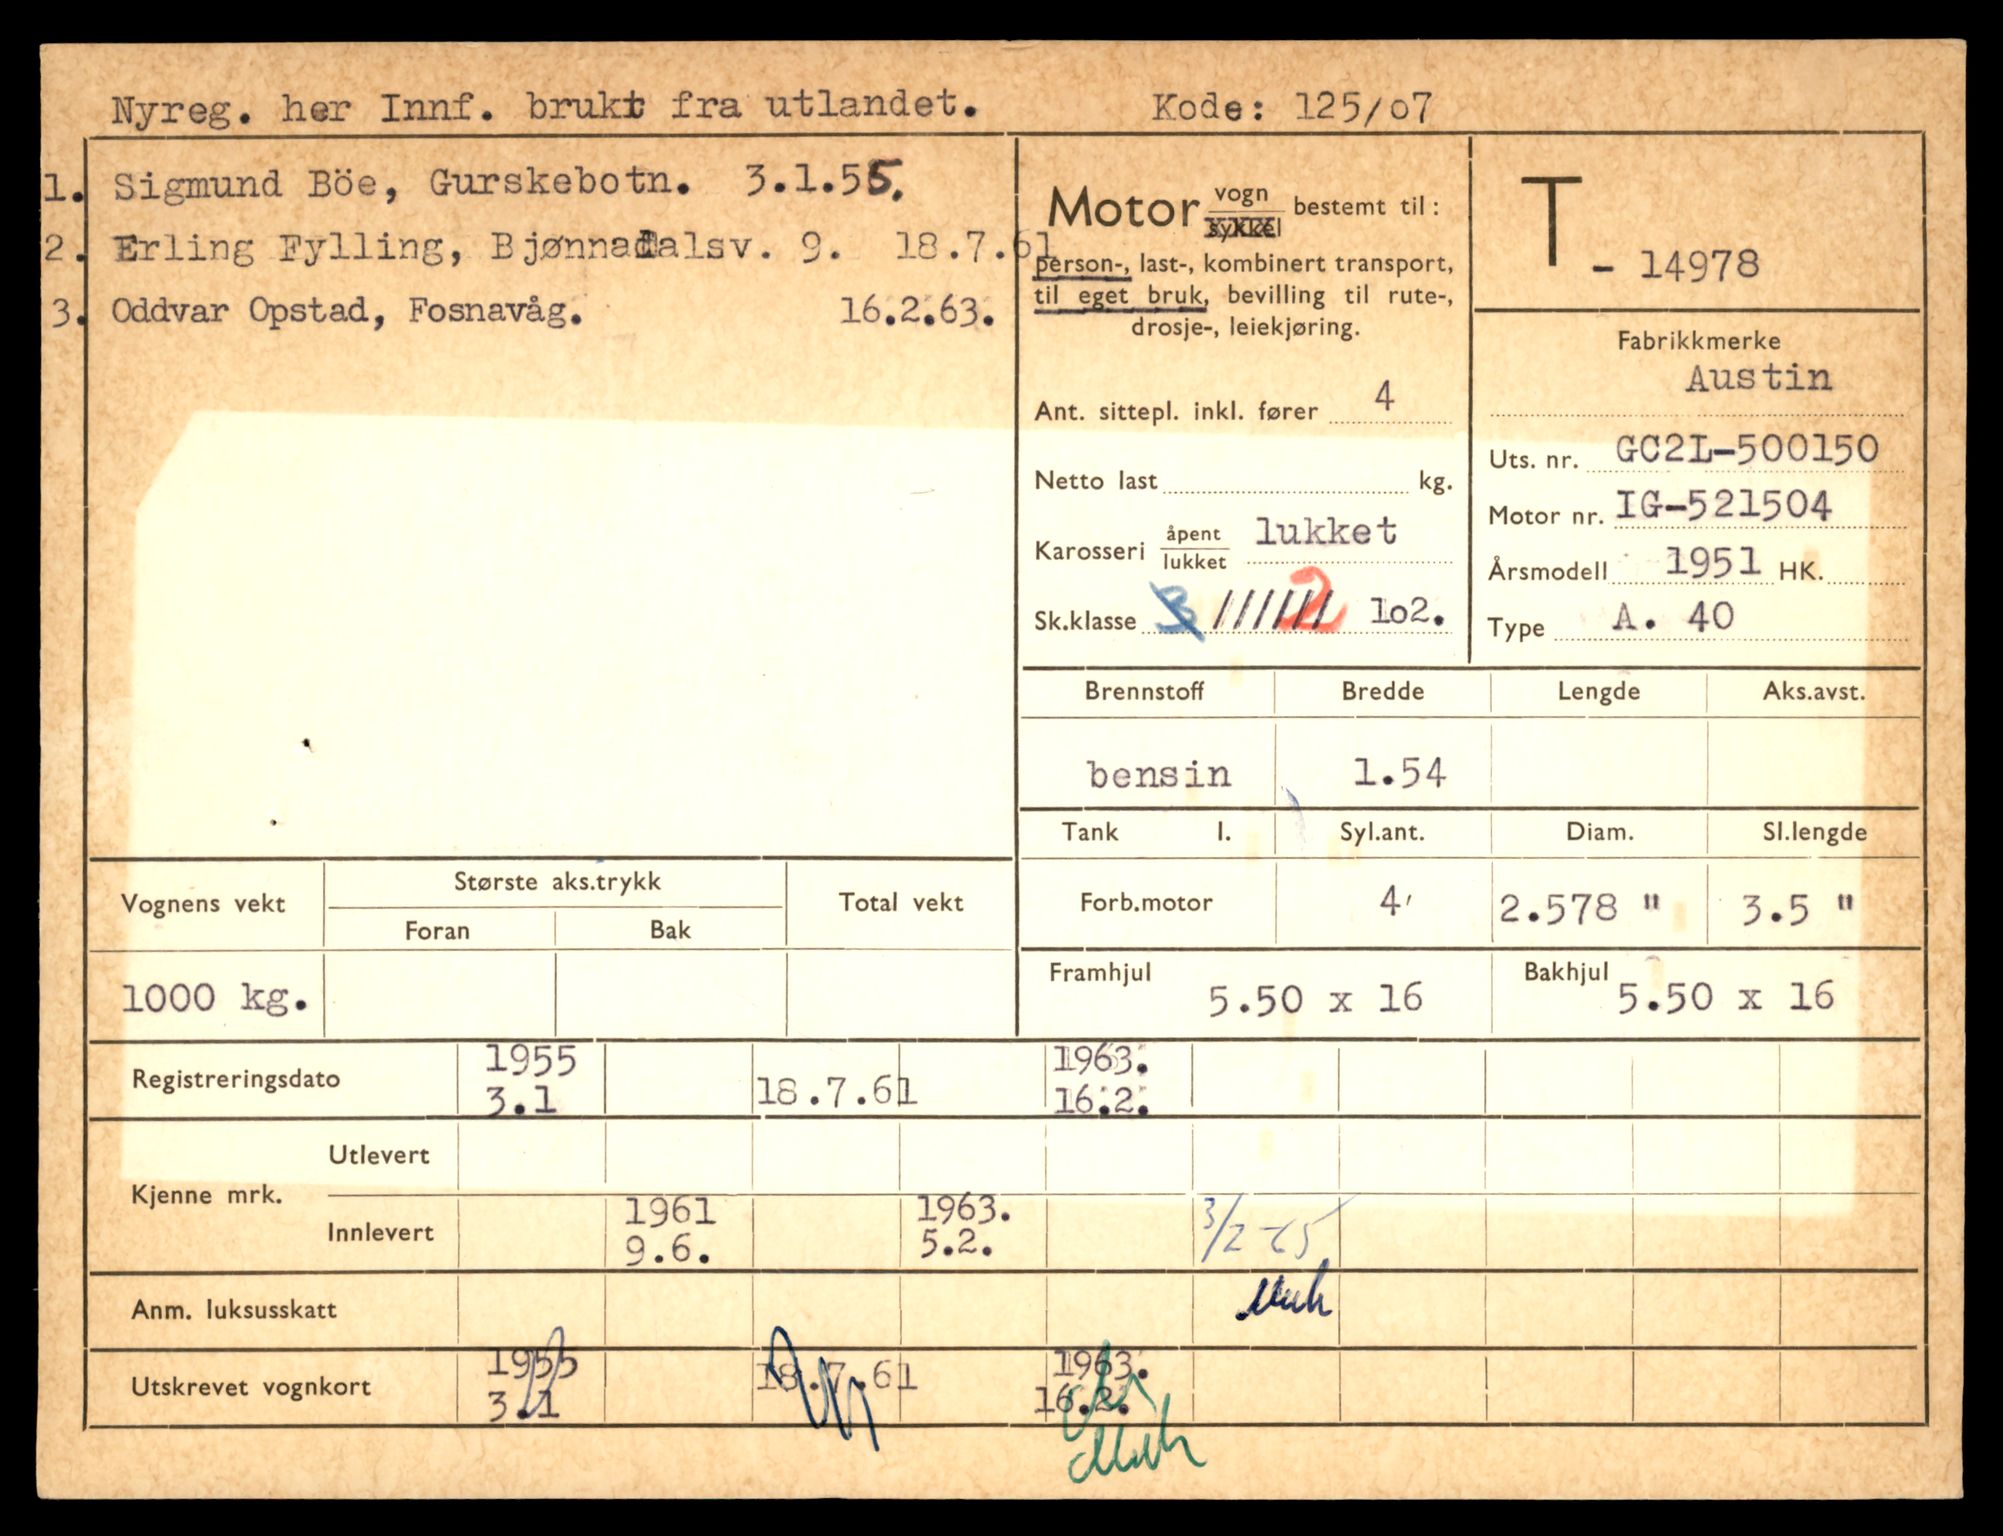 Nyreg. her Innf. brukt fra utlandet. Kode: 125/o7
1. Sigmund Böe, Gurskebotn. 3.1.55.
2. Erling Fylling, Bjønnadalsv. 9. 18.7.61
3. Oddvar Opstad, Fosnavåg. 16.2.63.
Motor vogn bestemt til:
sykkel
person-, last-, kombinert transport,
til eget bruk, bevilling til rute-,
drosje-, leiekjøring.
Ant. sittepl. inkl. fører 4
Netto last kg.
Karosseri åpent lukket
lukket
Sk.klasse 3 ////// 2 1o2.
T - 14978
Fabrikkmerke
Austin
Uts. nr. GC2L-500150
Motor nr. IG-521504
Årsmodell 1951 HK.
Type A. 40
Brennstoff Bredde Lengde Aks.avst.
bensin 1.54
Tank l. Syl.ant. Diam. Sl.lengde
Forb.motor 4 2.578 " 3.5 "
Framhjul 5.50 x 16 Bakhjul 5.50 x 16
Vognens vekt Største aks.trykk Total vekt
Foran Bak
1000 kg.
Registreringsdato 1955 1963.
3.1 18.7.61 16.2.
Kjenne mrk. Utlevert
Innlevert 1961 1963. 3/2-65
9.6. 5.2.
Anm. luksusskatt
Utskrevet vognkort 1955 18.7.61 1963.
3.1 16.2.